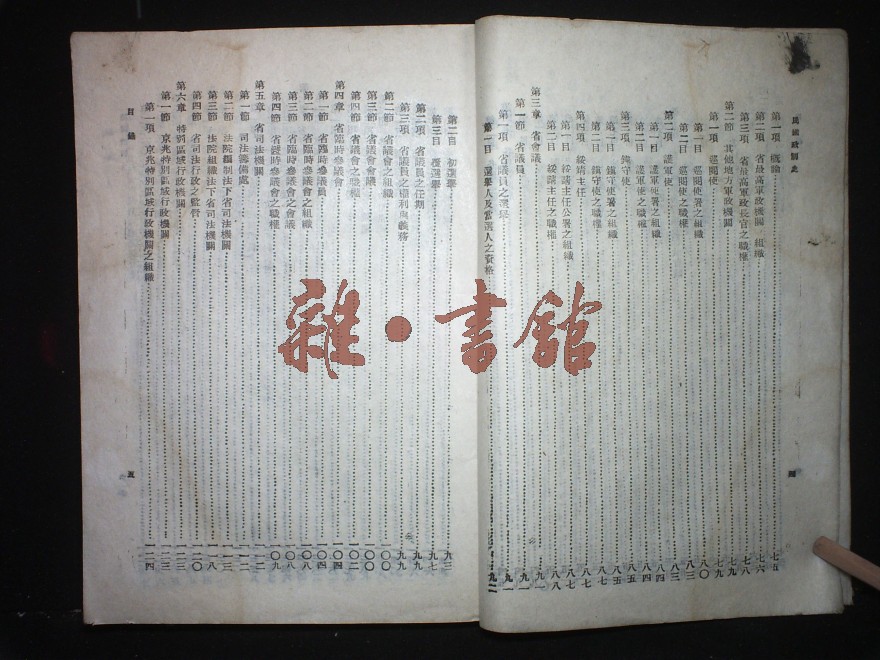 民國政制史
第一項 概論……七五
第二項 省最高軍政機關之組織……七六
第三項 省最高軍政長官之職權……七八
第二節 其他地方軍政機關……七九
第一項 巡閱使……七九
第一目 巡閱使署之組織……八〇
第二目 巡閱使之職權……八三
第二項 護軍使……八四
第一目 護軍使署之組織……八四
第二目 護軍使之職權……八五
第三項 鎮守使……八五
第一目 鎮守使署之組織……八七
第二目 鎮守使之職權……八七
第四項 綏靖主任……八七
第一目 綏靖主任公署之組織……八七
第二目 綏靖主任之職權……八八
第三章 省會議……九一
第一節 省議員……九一
第一項 省議員之選舉……九一
第一目 選舉人及當選人之資格……九二
四
第二目 初選舉……九三
第三目 覆選舉……九七
第二項 省議員之任期……九九
第三項 省議員之權利與義務……九九
第二節 省議會之組織……一〇〇
第三節 省議會會議……一〇〇
第四節 省議會之職權……一〇二
第四章 省臨時參議會……一〇四
第一節 省臨時參議員……一〇四
第二節 省臨時參議會之組織……一〇八
第三節 省臨時參議會之會議……一〇八
第四節 省臨時參議會之職權……一〇九
第五章 省司法機關……一一二
第一節 司法籌備處……一一二
第二節 法院編制法下省司法機關……一一三
第三節 法院組織法下省司法機關……一一八
第四節 省司法行政之監督……一二〇
第六章 特別區域行政機關……一二三
第一節 京兆特別區域行政機關……一二三
第一項 京兆特別區域行政機關之組織……一二四
目錄
五
雜·書館